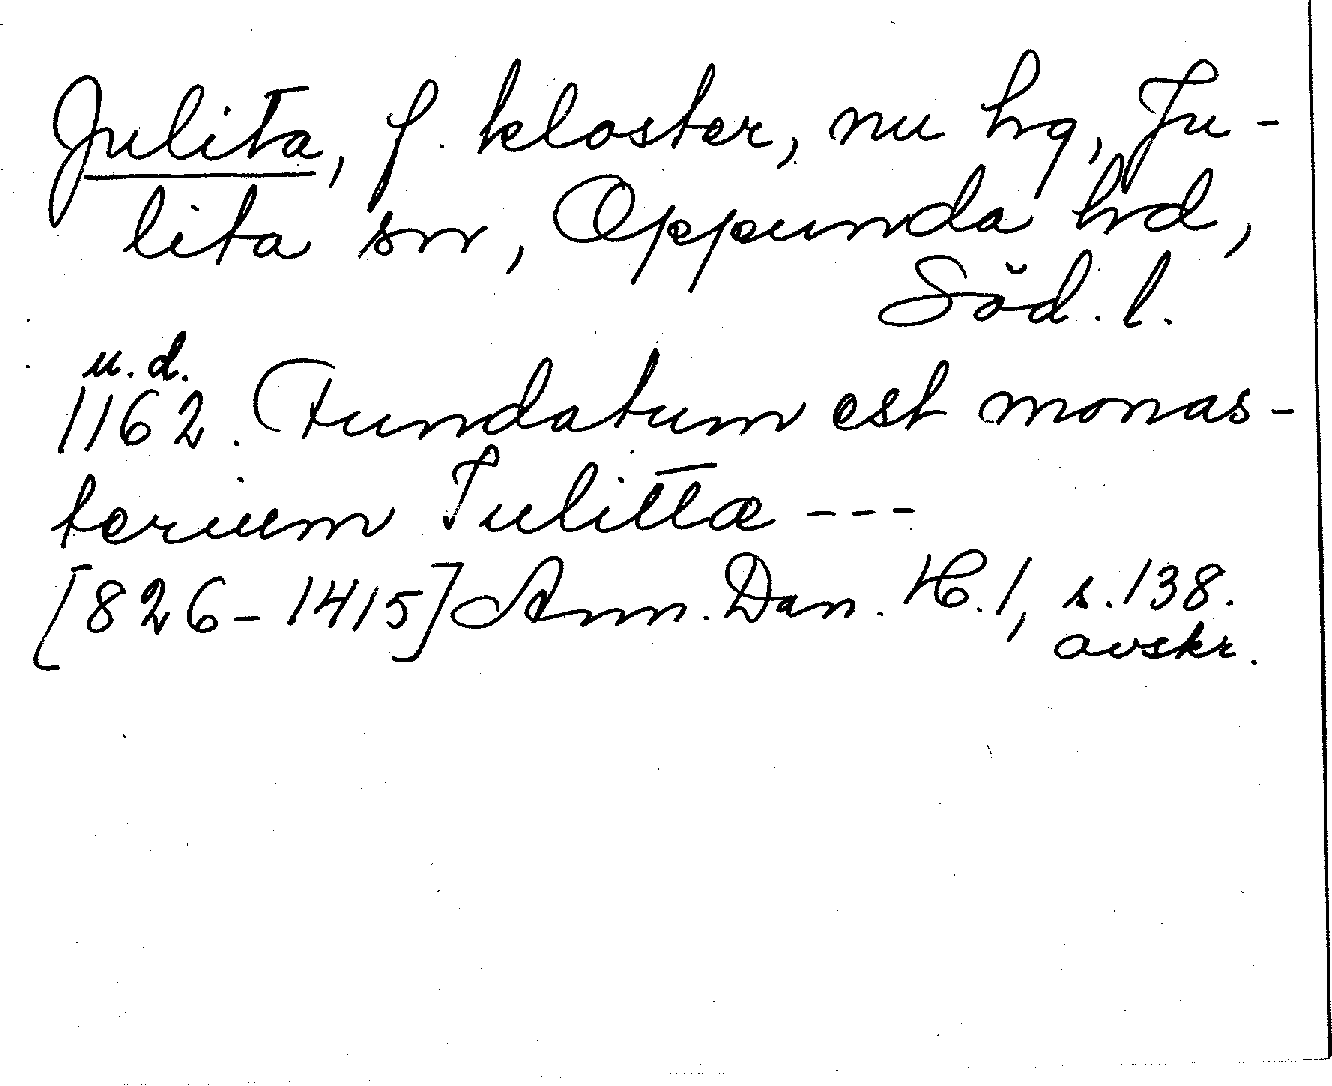 Julita, f. kloster, nu hg, Ju-
lita sn, Oppunda hd,
Söd. l.
u. d.
1162. Fundatum est monas-
terium Iulittæ ---
[826-1415] Ann. Dan. H. 1, s. 138.
avskr.